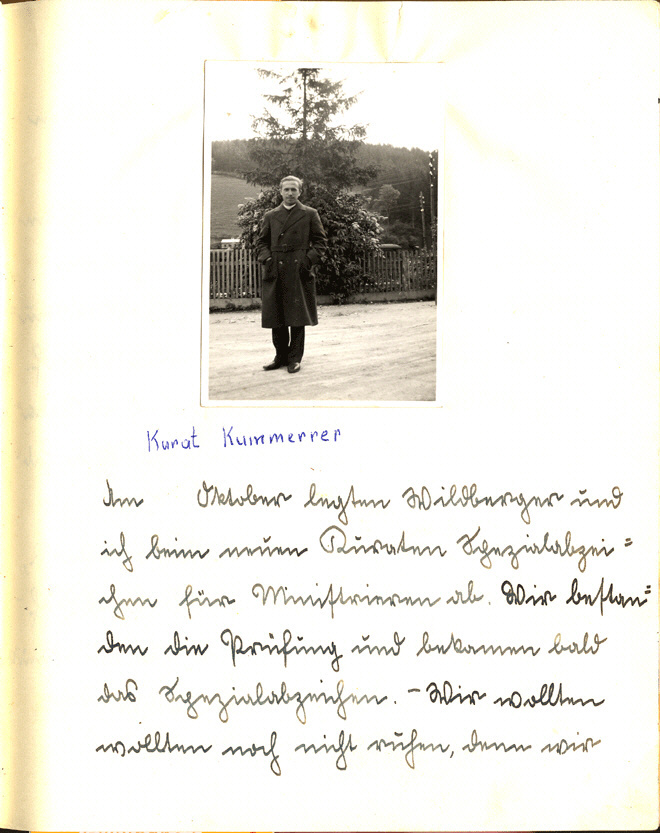 Kurat Kummerrer
Am Oktober legten Wildberger und
ich beim neuen Kuraten Spezialabzei=
chen für Ministrieren ab. Wir bestan=
den die Prüfung und bekamen bald
das Spezialabzeichen. – Wir wollten
wollten noch nicht ruhen, denn wir